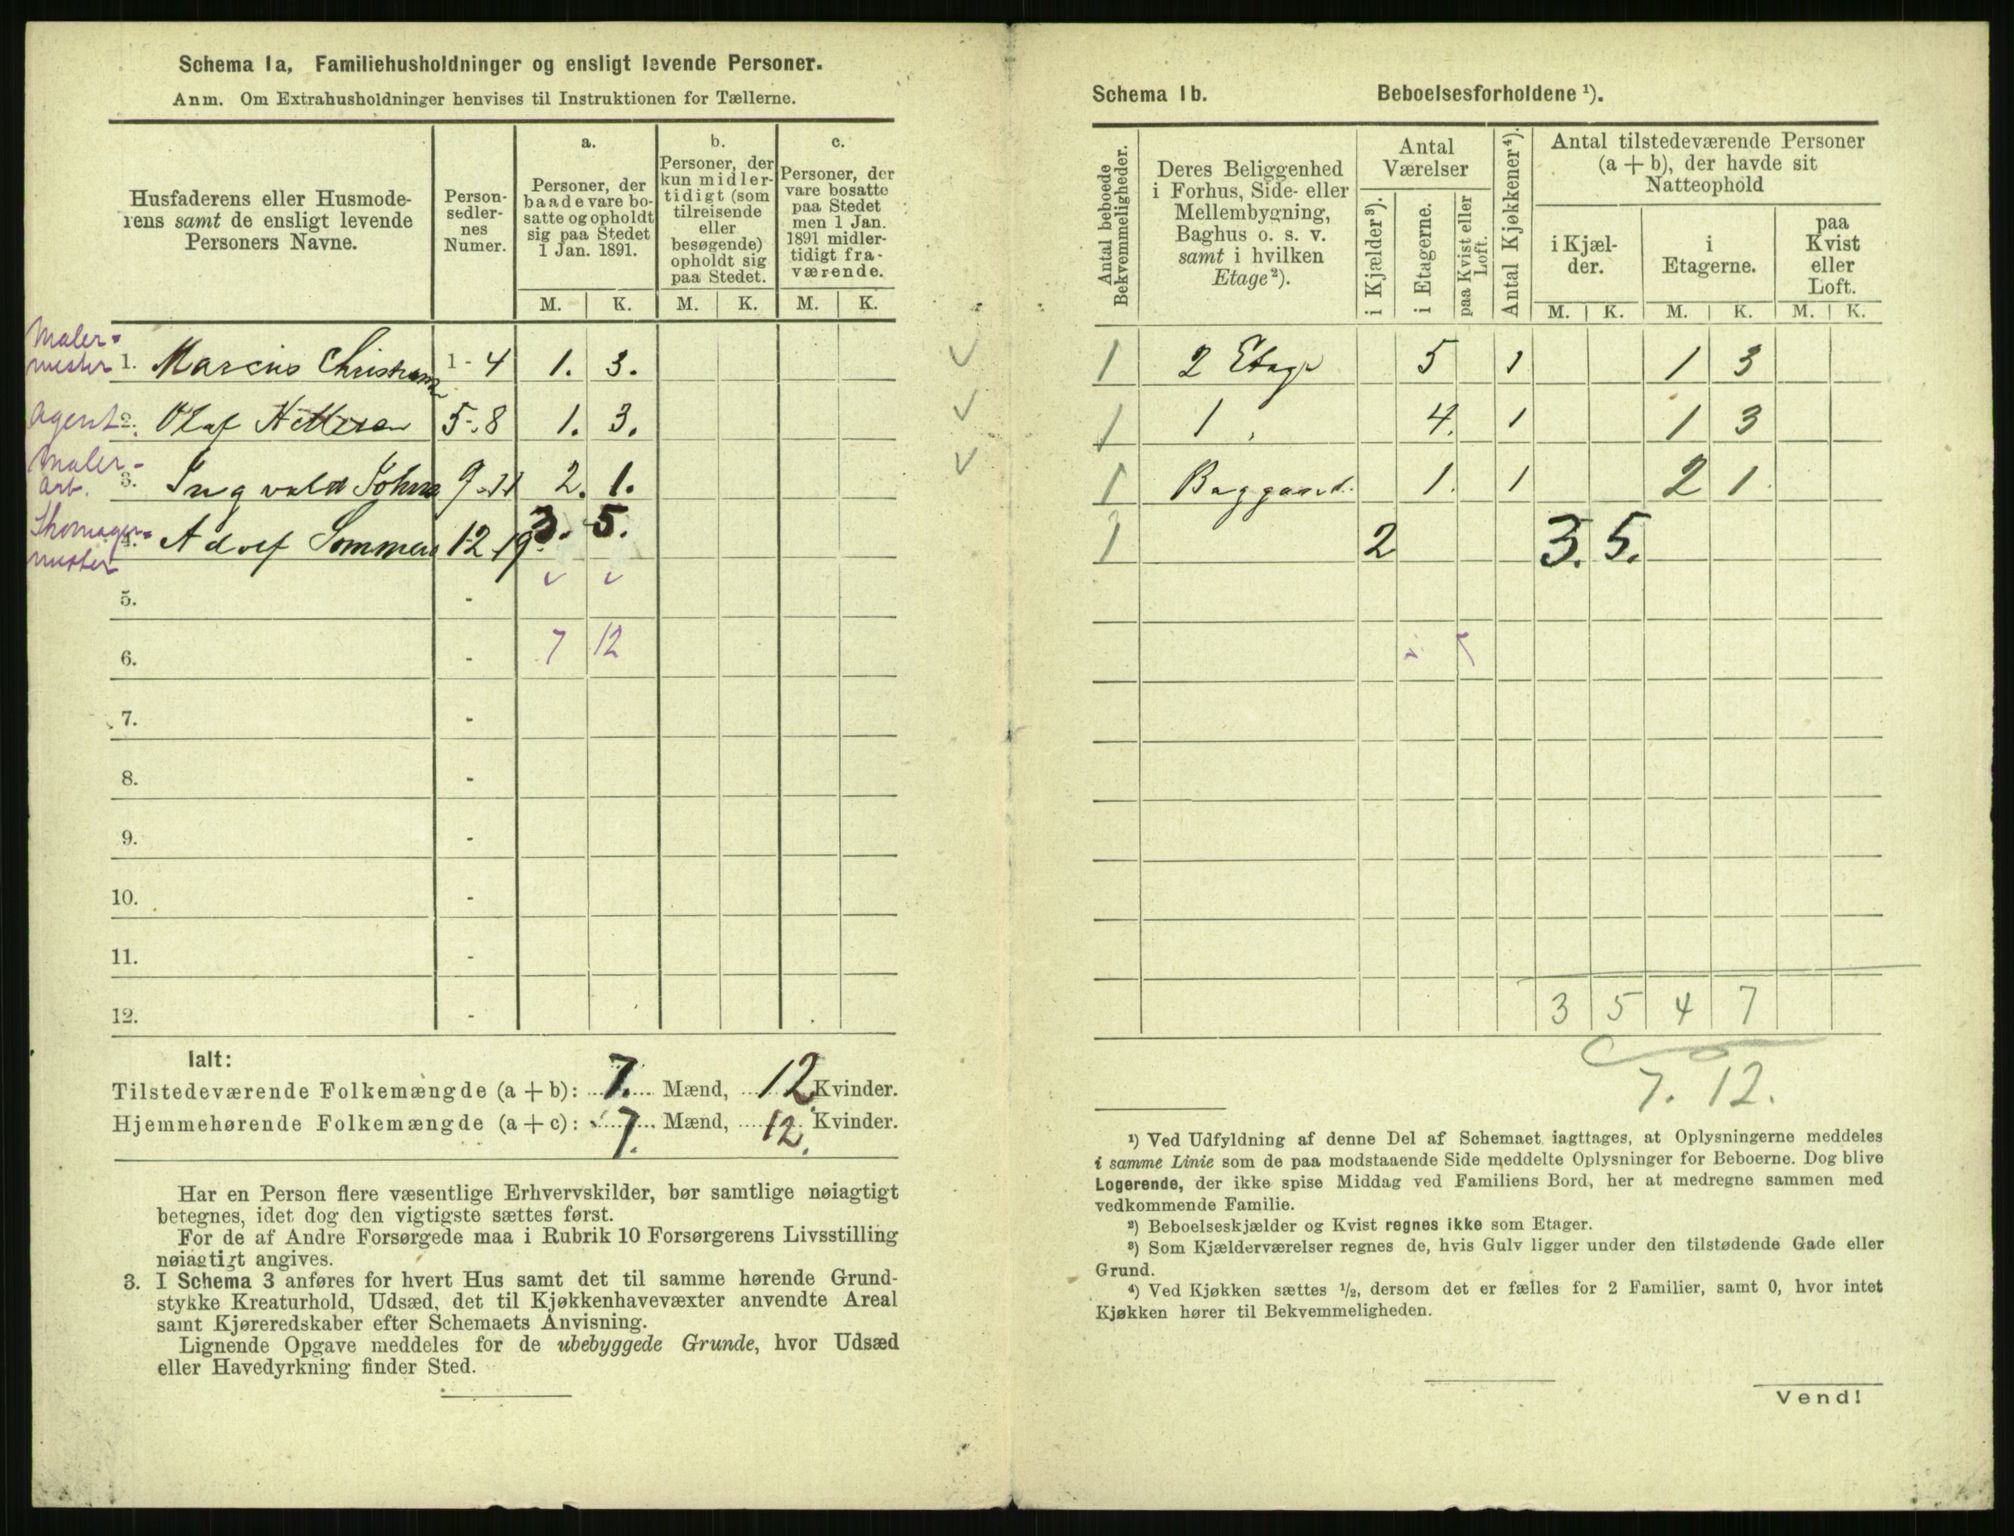 Schema 1a, Familiehusholdninger og ensligt levende Personer.
Anm. Om Extrahusholdninger henvises til Instruktionen for Tællerne.
Husfaderens eller Husmode-
rens samt de ensligt levende
Personers Navne.
Person-
sedler-
nes
Numer.
a.
Personer, der
baade vare bo-
satte og opholdt
sig paa Stedet
1 Jan. 1891.
b.
Personer, der
kun midler-
tidigt (som
tilreisende
eller
besøgende)
opholdt sig
paa Stedet.
c.
Personer, der
vare bosatte
paa Stedet
men 1 Jan.
1891 midler-
tidigt fra-
værende.
M. K. M. K. M. K.
Maler-
mester 1. Marcus Christiansen 1-4 1. 3.
Agent 2. Olaf 5-8 1. 3.
Maler-
arb. 3. Ingvald Johns 9-11 2. 1.
Skomager-
mester 4. Adolf Sommer 12-19 3. 5.
5. -
6. - 7 12
7. -
8. -
9. -
10. -
11. -
12. -
Ialt:
Tilstedeværende Folkemængde (a + b): 7. Mænd, 12 Kvinder.
Hjemmehørende Folkemængde (a + c): 7. Mænd, 12. Kvinder.
Har en Person flere væsentlige Erhvervskilder, bør samtlige nøiagtigt
betegnes, idet dog den vigtigste sættes først.
For de af Andre Forsørgede maa i Rubrik 10 Forsørgerens Livsstilling
nøiagtigt angives.
3. I Schema 3 anføres for hvert Hus samt det til samme hørende Grund-
stykke Kreaturhold, Udsæd, det til Kjøkkenhavevæxter anvendte Areal
samt Kjøreredskaber efter Schemaets Anvisning.
Lignende Opgave meddeles for de ubebyggede Grunde, hvor Udsæd
eller Havedyrkning finder Sted.
Schema 1b. Beboelsesforholdene ¹).
Antal beboede
Bekvemmeligheder.
Deres Beliggenhed
i Forhus, Side- eller
Mellembygning,
Baghus o. s. v.
samt i hvilken
Etage²).
Antal
Værelser
i Kjælder³).
i Etagerne.
paa Kvist eller
Loft.
Antal Kjøkkener⁴).
Antal tilstedeværende Personer
(a + b), der havde sit
Natteophold
i Kjæl-
der.
i
Etagerne.
paa
Kvist
eller
Loft.
M. K. M. K. M. K.
1 2 Etage 5 1 1 3
1 1 " 4. 1 1 3
1 Baggaard. 1. 1 2 1
1 2 3. 5.
3 5 4 7
7. 12.
¹) Ved Udfyldning af denne Del af Schemaet iagttages, at Oplysningerne meddeles
i samme Linie som de paa modstaaende Side meddelte Oplysninger for Beboerne. Dog blive
Logerende, der ikke spise Middag ved Familiens Bord, her at medregne sammen med
vedkommende Familie.
²) Beboelseskjælder og Kvist regnes ikke som Etager.
³) Som Kjælderværelser regnes de, hvis Gulv ligger under den tilstødende Gade eller
Grund.
⁴) Ved Kjøkken sættes ½, dersom det er fælles for 2 Familier, samt 0, hvor intet
Kjøkken hører til Bekvemmeligheden.
Vend!